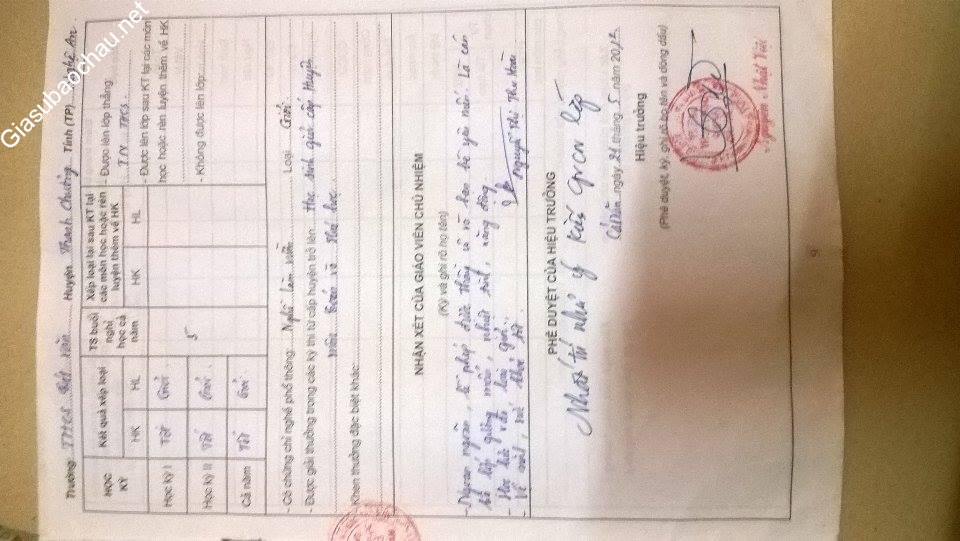 Giasubaochau.net
Trường THCS Cát Văn Huyện Thanh Chương Tỉnh (TP) Nghệ An
HỌC KỲ
Kết quả xếp loại
HK
HL
TS buổi nghỉ học cả năm
Xếp loại lại sau KT lại các môn học hoặc rèn luyện thêm về HK
HK
HL
Học kỳ I Tốt Giỏi
Học kỳ II Tốt Giỏi 5
Cả năm Tốt Giỏi
- Được lên lớp thẳng:
TN THCS
- Được lên lớp sau KT lại các môn
học hoặc rèn luyện thêm về HK
- Không được lên lớp:
- Có chứng chỉ nghề phổ thông: Nghề Làm vườn Loại Giỏi
- Được giải thưởng trong các kỳ thi từ cấp huyện trở lên: Học sinh giỏi cấp Huyện
- Khen thưởng đặc biệt khác:
NHẬN XÉT CỦA GIÁO VIÊN CHỦ NHIỆM
(Ký và ghi rõ họ tên)
- Ngoan ngoãn, lễ phép được thầy cô và bạn bè yêu mến. Là cán
bộ lớp gương mẫu, nhiệt tình, năng động.
- Học lực vào loại giỏi.
Nguyễn Thị Thu
PHÊ DUYỆT CỦA HIỆU TRƯỞNG
Nhất trí như ý kiến GVCN lớp
Cát Văn, ngày 21 tháng 5 năm 2012
Hiệu trưởng
(Phê duyệt, ký, ghi rõ họ tên và đóng dấu)
Nguyễn Nhật
9